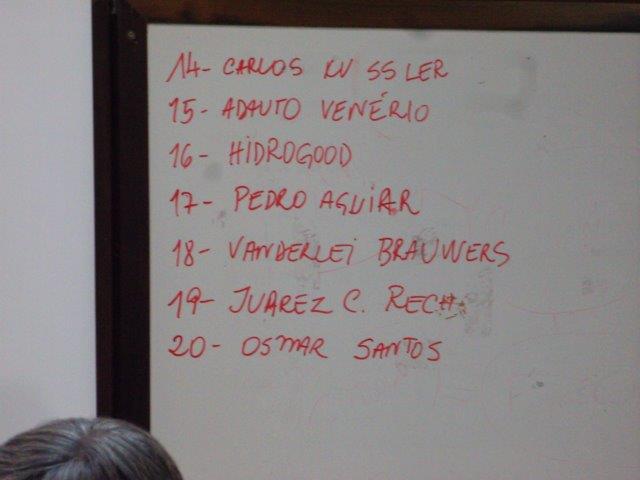 14- CARLOS KUSSLER
15- ADAUTO VENÉRIO
16- HIDROGOOD
17- PEDRO AGUIAR
18- VANDERLEI BRAUWERS
19- JUAREZ C. RECH
20- OSMAR SANTOS